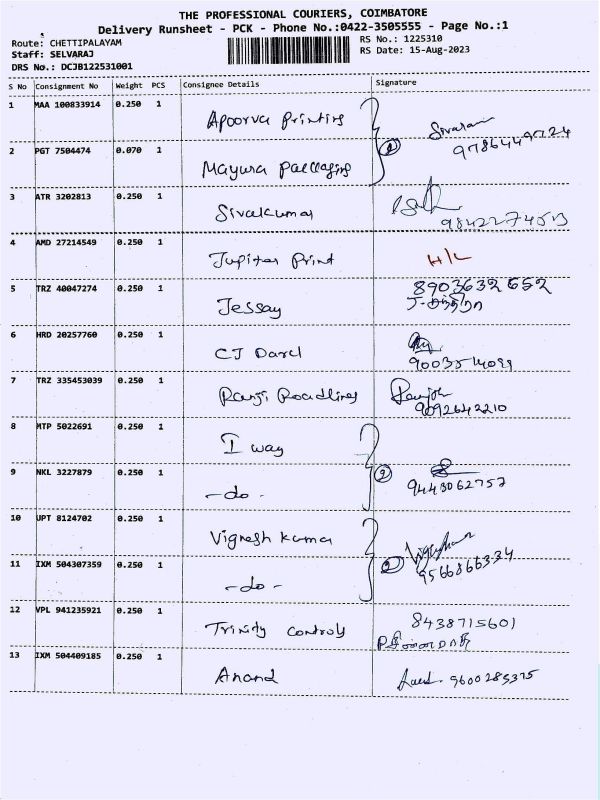 THE PROFESSIONAL COURIERS, COIMBATORE
Delivery Runsheet - PCK - Phone No.:0422-3505555 - Page No.:1
Route: CHETTIPALAYAM
Staff: SELVARAJ
DRS No.: DCJB122531001
RS No.: 1225310
RS Date: 15-Aug-2023
S No Consignment No Weight PCS Consignee Details Signature
1 MAA 100833914 0.250 1 Apoorva Printing
2 PGT 7504474 0.070 1 Mayura Packaging
3 ATR 3202813 0.250 1 Sivakumar
4 AMD 27214549 0.250 1 Jupiter Print H/L
5 TRZ 40047274 0.250 1 Jessay 8903632652
6 HRD 20257760 0.250 1 CJ
7 TRZ 335453039 0.250 1 Ranji Roadlines 9092642210
8 MTP 5022691 0.250 1 I way
9 NKL 3227879 0.250 1 -do- 9443062757
10 UPT 8124702 0.250 1 Vignesh Kumar
11 IXM 504307359 0.250 1 -do- 9566866334
12 VPL 941235921 0.250 1 Trinity controls 8438715601
13 IXM 504409185 0.250 1 Anand 9600285375